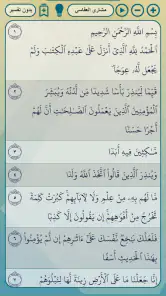 مشاري العفاسي
بدون تفسير
بِسْمِ اللَّهِ الرَّحْمَٰنِ الرَّحِيمِ
الْحَمْدُ لِلَّهِ الَّذِي أَنزَلَ عَلَىٰ عَبْدِهِ الْكِتَابَ وَلَمْ
يَجْعَل لَّهُ عِوَجًا
١
قَيِّمًا لِّيُنذِرَ بَأْسًا شَدِيدًا مِّن لَّدُنْهُ وَيُبَشِّرَ
الْمُؤْمِنِينَ الَّذِينَ يَعْمَلُونَ الصَّالِحَاتِ أَنَّ لَهُمْ
أَجْرًا حَسَنًا
٢
مَّاكِثِينَ فِيهِ أَبَدًا
٣
وَيُنذِرَ الَّذِينَ قَالُوا اتَّخَذَ اللَّهُ وَلَدًا
٤
مَّا لَهُم بِهِ مِنْ عِلْمٍ وَلَا لِآبَائِهِمْ كَبُرَتْ كَلِمَةً
تَخْرُجُ مِنْ أَفْوَاهِهِمْ إِن يَقُولُونَ إِلَّا كَذِبًا
٥
فَلَعَلَّكَ بَاخِعٌ نَّفْسَكَ عَلَىٰ آثَارِهِمْ إِن لَّمْ يُؤْمِنُوا
بِهَٰذَا الْحَدِيثِ أَسَفًا
٦
إِنَّا جَعَلْنَا مَا عَلَى الْأَرْضِ زِينَةً لَّهَا لِنَبْلُوَهُمْ